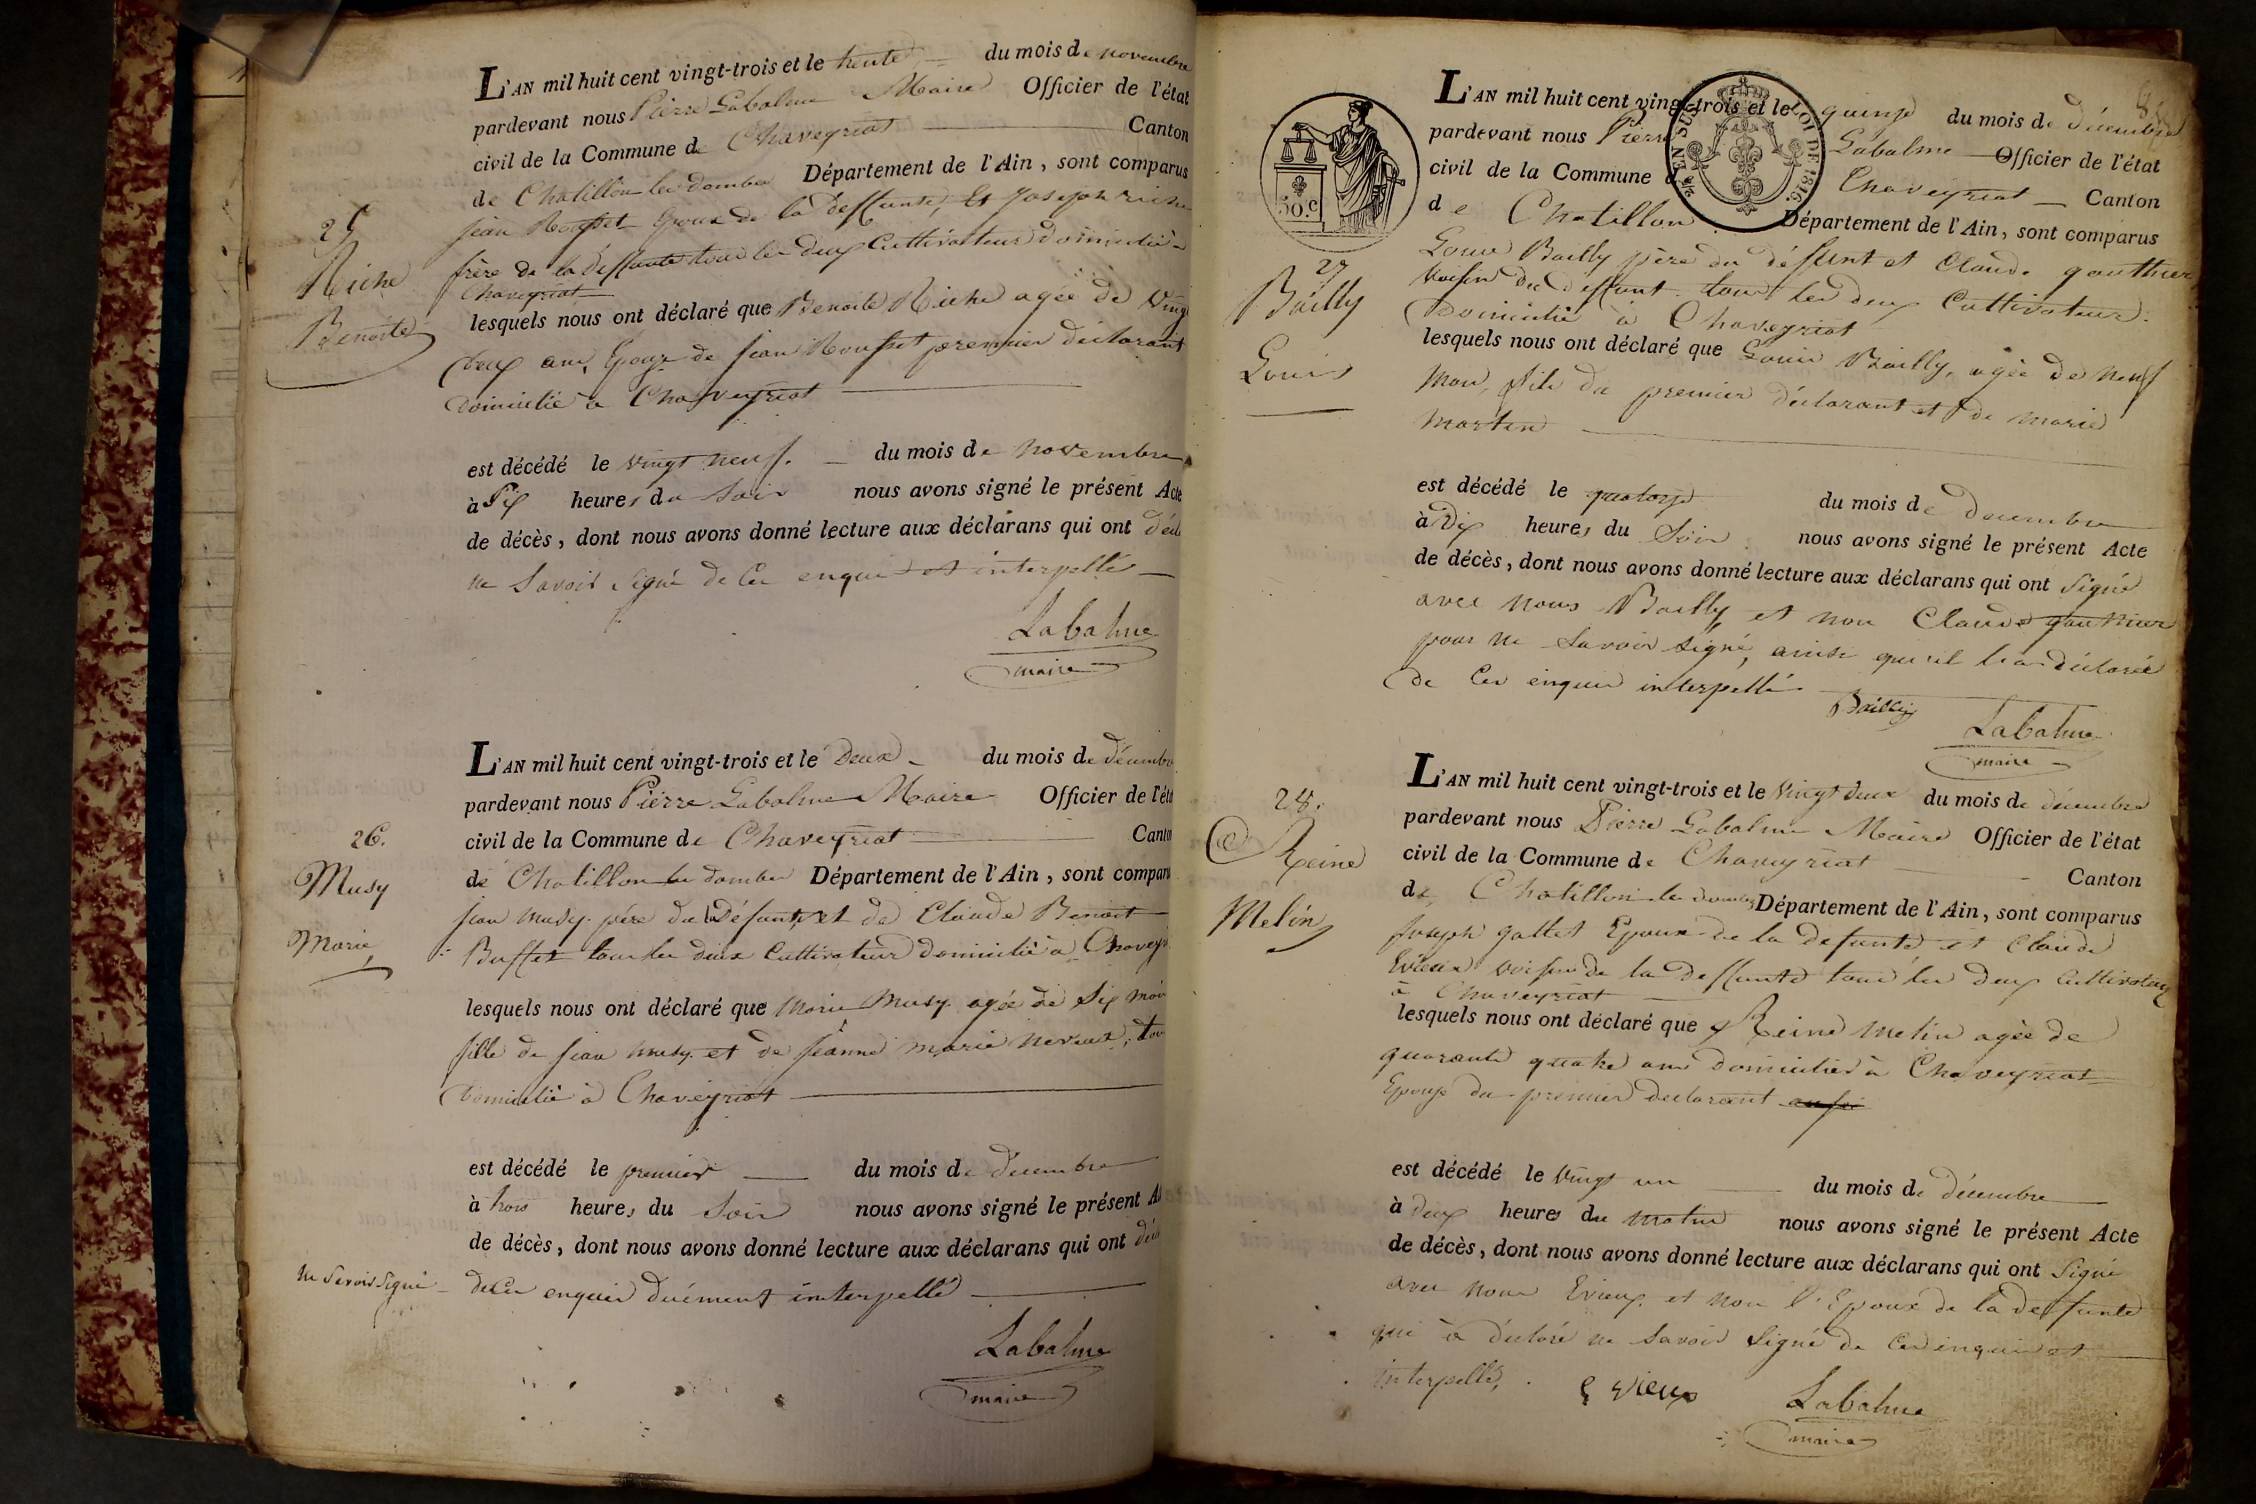 L'AN mil huit cent vingt-trois et le trente du mois de novembre
pardevant nous Pierre Labalme Maire Officier de l'état
civil de la Commune de Chaveyriat Canton
de Chatillon les dombes Département de l'Ain, sont comparus
jean Rousset Epoux de la deffunte, Et joseph riche
frère de la deffunte tous les deux Cultivateurs domicilié
Chaveyriat
lesquels nous ont déclaré que Benoite Riche agée de Vingt
Deux ans, Epouze de jean Rousset premier déclarant
Domicilié à Chaveyriat
est décédé le vingt neuf du mois de novembre
à Six heures du Soir nous avons signé le présent Acte
de décès, dont nous avons donné lecture aux déclarans qui ont
ne Savoir Signé de Ce enquis et interpellé
Labalme
maire
25
Riche
Benoite
L'AN mil huit cent vingt-trois et le Deux du mois de décembre
pardevant nous Pierre Labalme Maire Officier de l'état
civil de la Commune de Chaveyriat Canton
de Chatillon les dombes Département de l'Ain, sont comparus
jean Musy père de la Défunte, et de Claude Benoit
Buffet tous les deux Cultivateur domicilié à
lesquels nous ont déclaré que Marie Musy agée de Six mois
fille de jean Musy et de jeanne marie
Domicilié à Chaveyriat
est décédé le premier du mois de décembre
à trois heures du Soir nous avons signé le présent
de décès, dont nous avons donné lecture aux déclarans qui ont
ne Savoir Signé de Ce enquis duement interpellé
Labalme
maire
26.
Musy
Marie
L'AN mil huit cent vingt-trois et le quinze du mois de décembre
pardevant nous Pierre Labalme Officier de l'état
civil de la Commune d Chaveyriat Canton
de Chatillon Département de l'Ain, sont comparus
Louis Bailly père du défunt et Claude gauthier
Voisin du deffunt tous les deux Cultivateur
Domicilié à Chaveyriat
lesquels nous ont déclaré que Louis Bailly, agée de neuf
Mois, fils du premier déclarant et de marie
Martin
est décédé le quatorze du mois de décembre
à Dix heures du Soir nous avons signé le présent Acte
de décès, dont nous avons donné lecture aux déclarans qui ont Signé
avec nous Bailly et non Claude gauthier
pour ne Savoir signé, ainsi qu'il l'a déclaré
de Ces enquis interpellé
Bailly
Labalme
maire
50.C
LOI DE 1816.
27
Bailly
Louis
L'AN mil huit cent vingt-trois et le Vingt deux du mois de décembre
pardevant nous Pierre Labalme Maire Officier de l'état
civil de la Commune de Chaveyriat Canton
de Chatillon les dombes Département de l'Ain, sont comparus
joseph gallet Epoux de la defunte et Claude
Evieux voisin de la Deffunte tous les deux Cultivateurs
à Chaveyriat
lesquels nous ont déclaré que Reine Melin agée de
quarante quatre ans domicilier à Chaveyriat
Epouze du premier déclarant
est décédé le Vingt un du mois de décembre
à deux heures du matin nous avons signé le présent Acte
de décès, dont nous avons donné lecture aux déclarans qui ont Signé
avec nous Evieux et non l'Epoux de la deffunte
qui a déclaré ne Savoir Signé de Ces enquis et
interpellé,
Evieux
Labalme
maire
28.
Reine
Melin